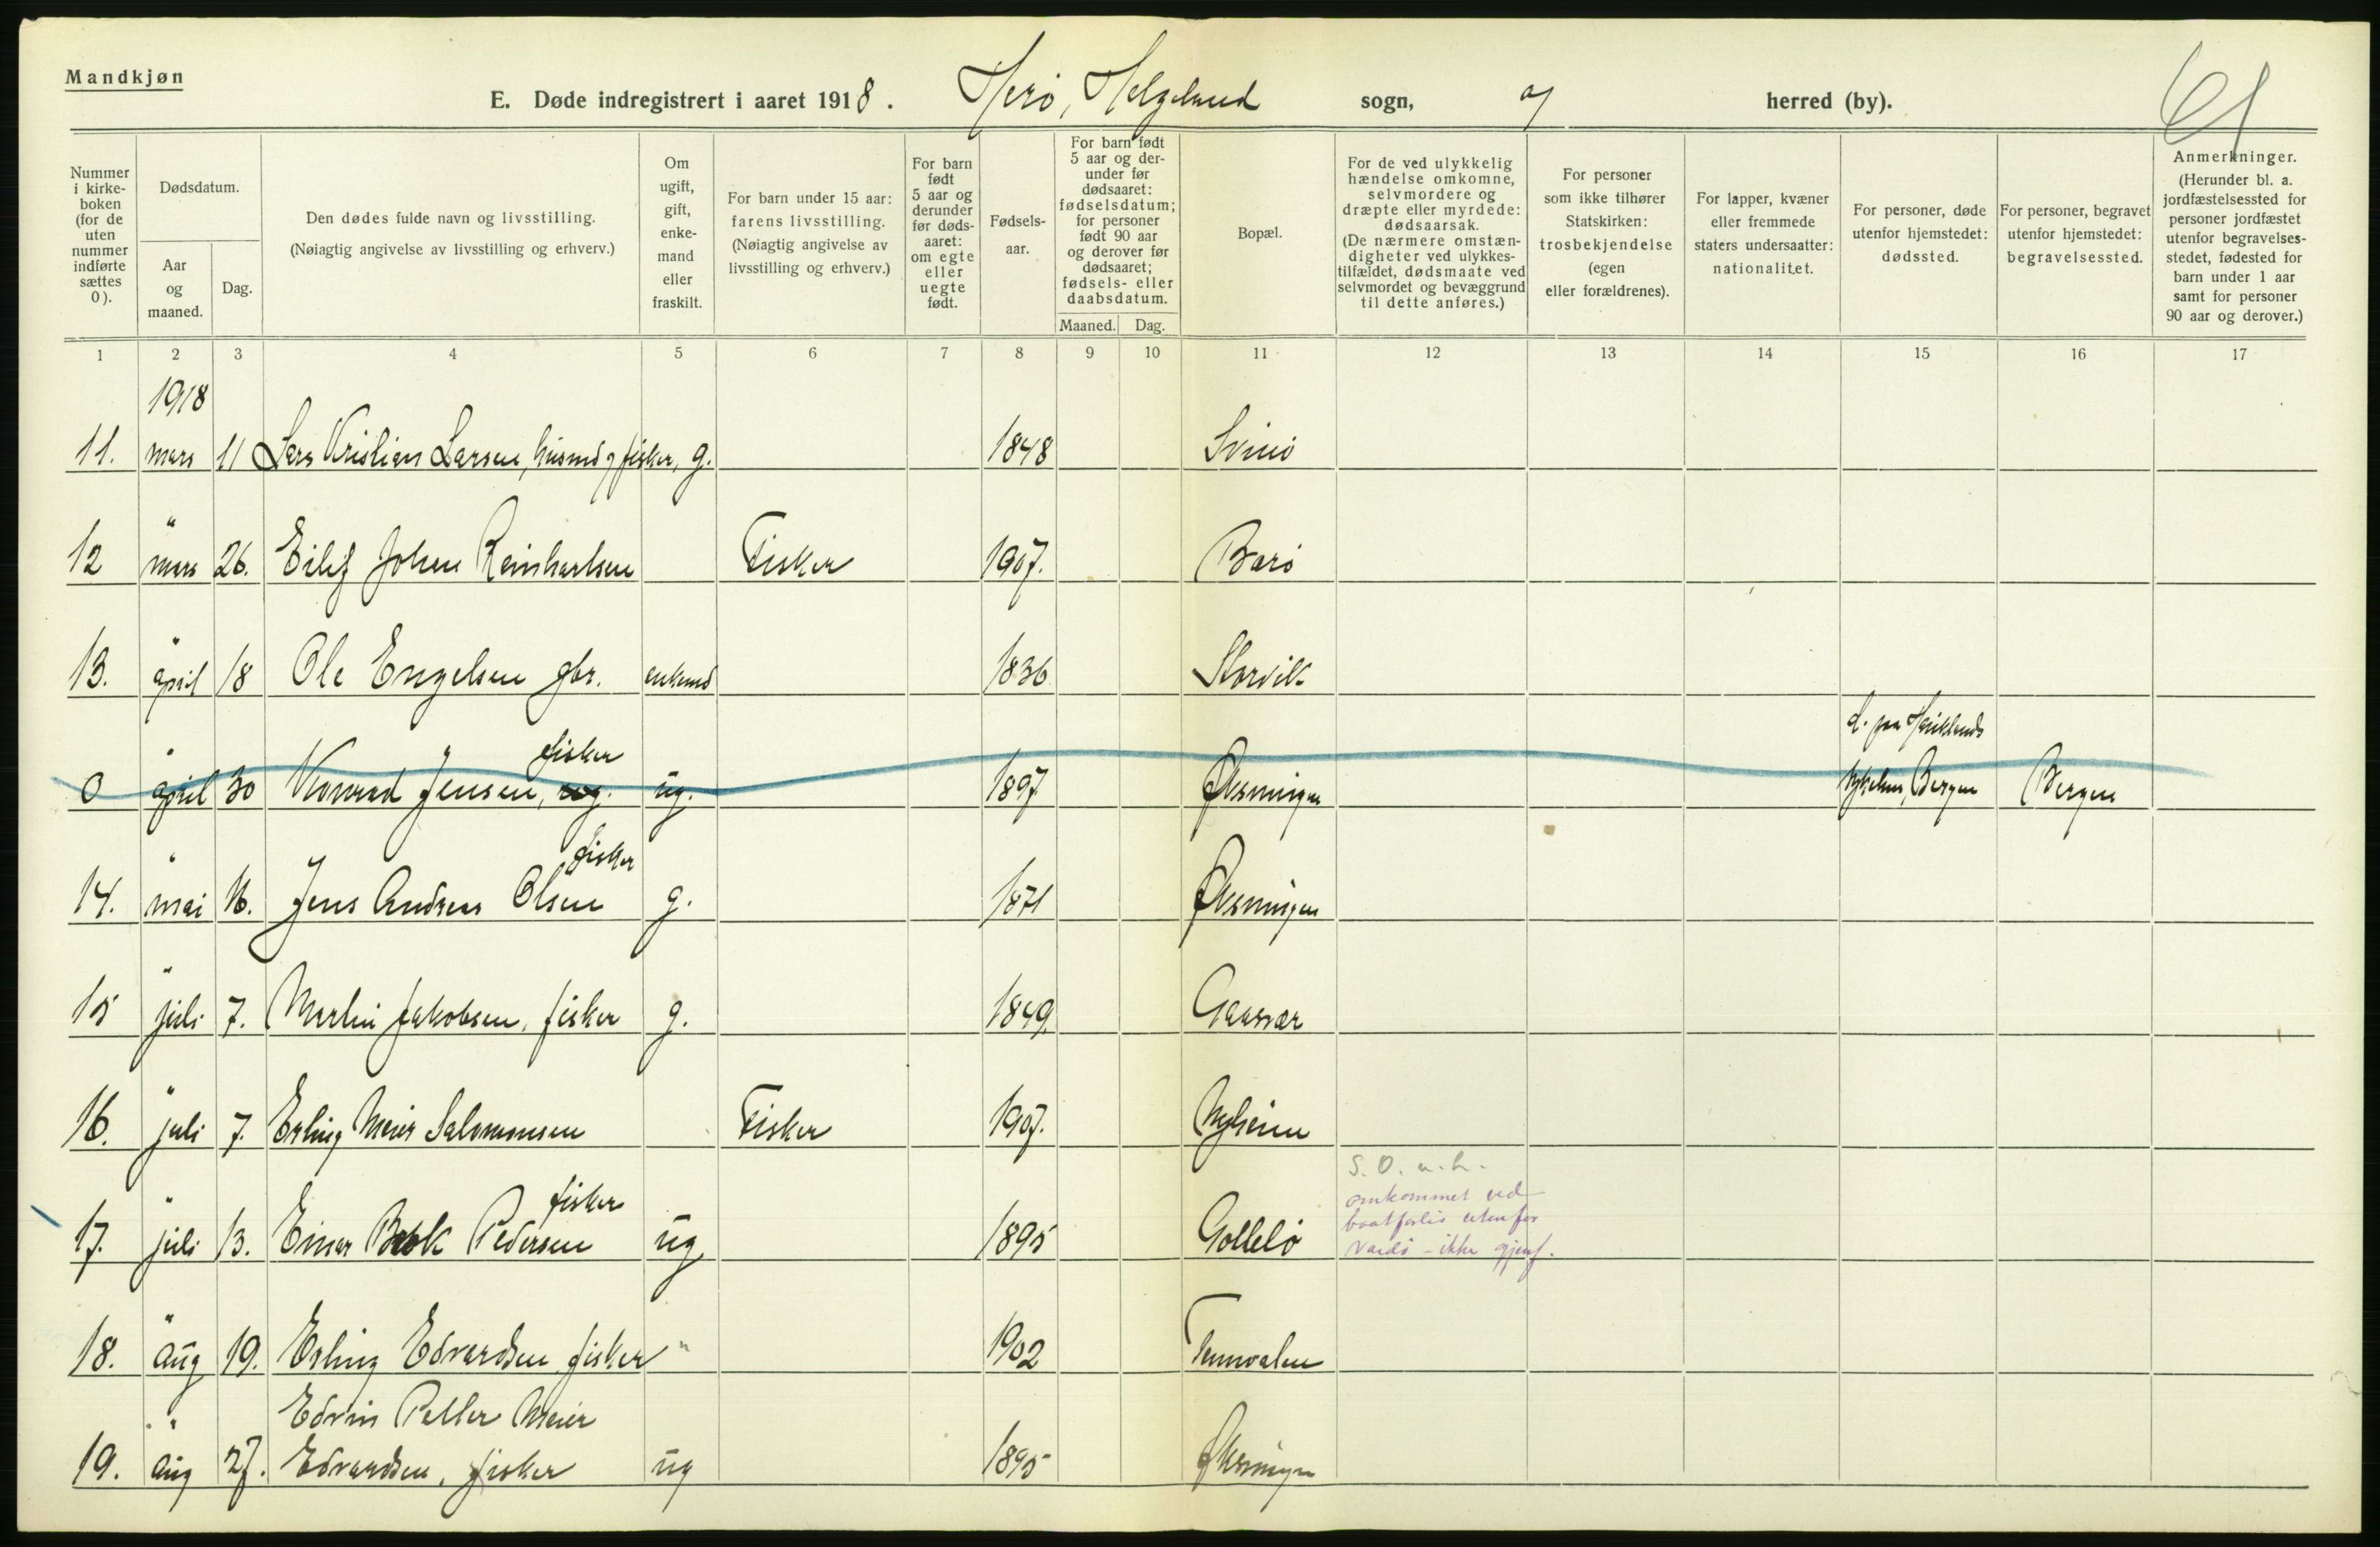 Mandkjøn
E. Døde indregistrert i aaret 1918. Herö, Helgeland sogn, og herred (by).
61
Nummer i kirke- boken (for de uten nummer indførte sættes 0).
Dødsdatum.
Aar og maaned.
Dag.
Den dødes fulde navn og livsstilling.
(Nøiagtig angivelse av livsstilling og erhverv.)
Om ugift, gift, enke- mand eller fraskilt.
For barn under 15 aar: farens livsstilling. (Nøiagtig angivelse av livsstilling og erhverv.)
For barn født 5 aar og derunder før døds- aaret: om egte eller uegte født.
Fødsels- aar.
For barn født 5 aar og der- under før dødsaaret: fødselsdatum; for personer født 90 aar og derover før dødsaaret; fødsels- eller daabsdatum.
Maaned. Dag.
Bopæl.
For de ved ulykkelig hændelse omkomne, selvmordere og dræpte eller myrdede: dødsaarsak. (De nærmere omstæn- digheter ved ulykkes- tilfældet, dødsmaate ved selvmordet og bevæggrund til dette anføres.)
For personer som ikke tilhører Statskirken: trosbekjendelse (egen eller forældrenes).
For lapper, kvæner eller fremmede staters undersaatter: nationalitet.
For personer, døde utenfor hjemstedet: dødssted.
For personer, begravet utenfor hjemstedet: begravelsessted.
Anmerkninger. (Herunder bl. a. jordfæstelsessted for personer jordfæstet utenfor begravelses- stedet, fødested for barn under 1 aar samt for personer 90 aar og derover.)
1 2 3 4 5 6 7 8 9 10 11 12 13 14 15 16 17
1918
11. mars 11 Lars Kristian Larsen, husmd og fisker, g. 1848 Svinö
"
12 mars 26. Eilif Johan Reinhartsen Fisker 1907. Barö
"
13. april 18 Ole Engelsen gbr. enkemd 1836 Storvik
d. paa Haukelands
" fisker
0 april 30 Konrad Jensen, ug. 1897 Øksningen Sykehus, Bergen Bergen
" fisker
14. mai 16. Jens Andreas Olsen g. 1871 Øksningen
"
15 juli 7. Martin Jakobsen, fisker g. 1849. Gaasvær
"
16. juli 7. Erling Meier Salomonsen Fisker 1907. Nyheim
S. O. u. h.
" fisker omkommet ved
baatforlis utenfor
17. juli 13. Einar Pedersen ug 1895 Gottelö Vardö - ikke gjenf.
"
18. Aug 19. Erling Edvardsen fisker " 1902 Tennvalen
" Edvin Petter Meier
19. Aug 27. Edvardsen, fisker ug 1895 Øksningen